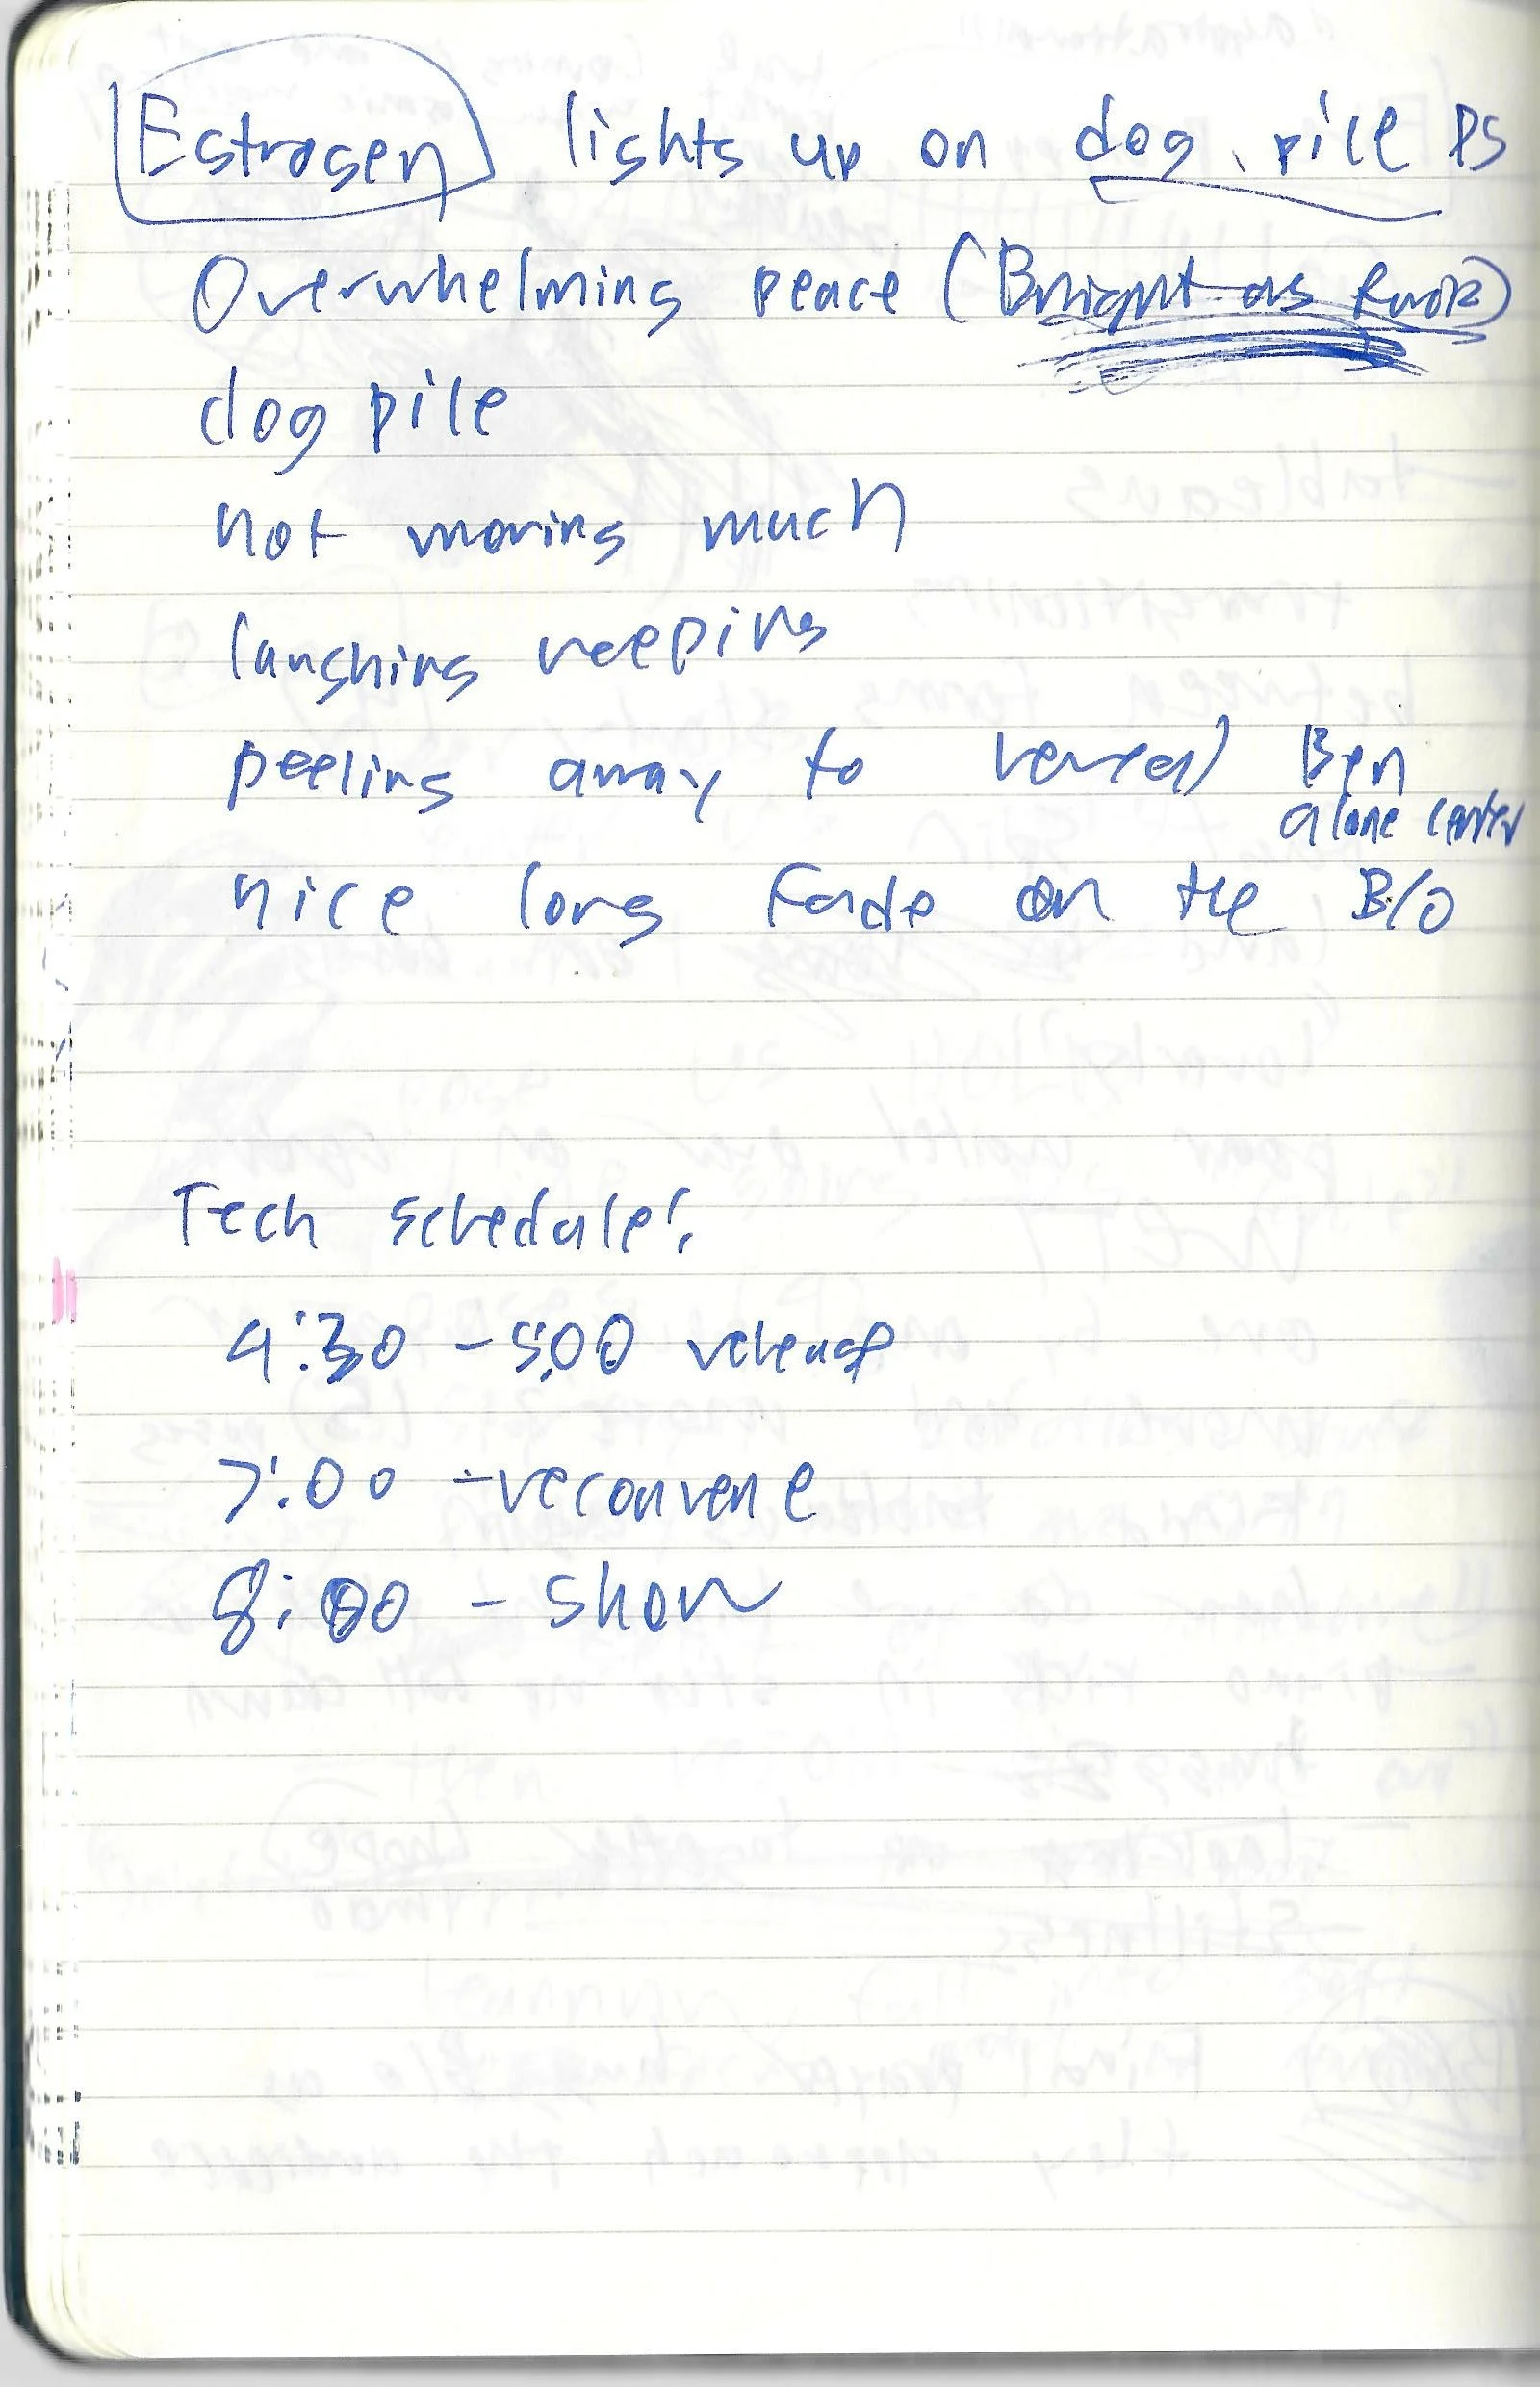 Estrogen lights up on dog pile DS
Overwhelming peace (Bright as fuck)
dog pile
not moving much
laughing weeping
peeling away to reveal Ben
alone center
nice long fade on the B/O
Tech schedule:
4:30 - 5:00 release
7:00 - reconvene
8:00 - show